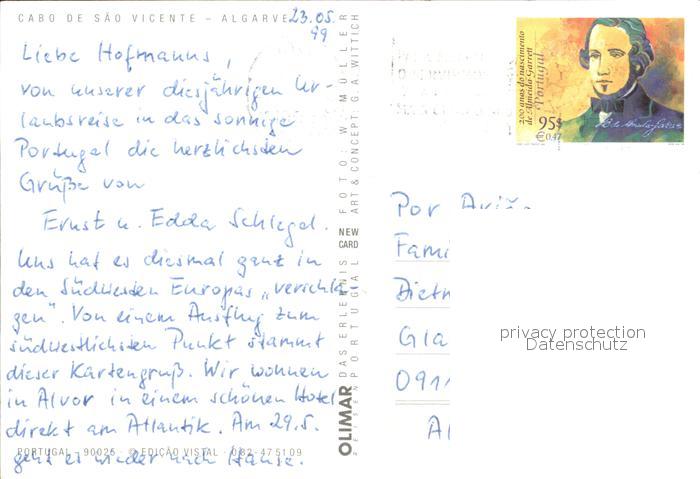 CABO DE SÃO VICENTE – ALGARVE
23.05.
99
Liebe Hofmanns,
von unserer diesjährigen Ur-
laubsreise in das sonnige
Portugal die herzlichsten
Grüße von
Ernst u. Edda Schlegel.
Uns hat es diesmal ganz in
den Südwesten Europas „verschla-
gen“. Von einem Ausflug zum
südwestlichsten Punkt stammt
dieser Kartengruß. Wir wohnen
in Alvor in einem schönen Hotel
direkt am Atlantik. Am 29.5.
geht es wieder nach Hause.
PORTUGAL – 90026 – © EDIÇÃO VISTAL – 082-475109
FOTO: W. MÜLLER
ART & CONCEPT: G.A. WITTICH
NEW
CARD
OLIMAR
DAS ERLEBNIS
REISEN PORTUGAL
200 anos do nascimento
de Almeida Garrett
Portugal
95$
€0,47
Por
Fami
Dietm
Gla
091
privacy protection
Datenschutz